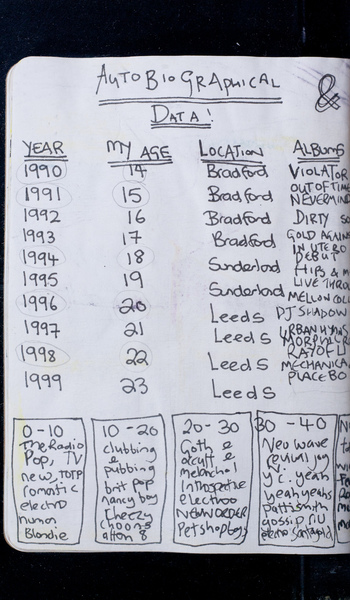 AUTOBIOGRAPHICAL &
DATA!
YEAR MY AGE LOCATION ALBUMS
1990 14 Bradford VIOLATOR
1991 15 Bradford OUT OF TIME
NEVERMIND
1992 16 Bradford DIRTY
1993 17 Bradford GOLD AGAINS
IN UTERO
1994 18 Sunderland DEBUT
1995 19 Sunderland HIPS & M
LIVE THRO
1996 20 Leeds MELLON COLL
DJ SHADOW
1997 21 Leeds URBAN HYMNS
1998 22 Leeds RAY OF LI
MECHANICA
1999 23 Leeds PLACEBO
0-10
The Radio
Pop, TV
new, TOTP
romantic
electro
numan
Blondie
10-20
clubbing
&
pubbing
brit pop
nancy boy
Cheezy
choons
after 8
20-30
Goth &
melanchol
Introspective
electroo
NEWORDER
Petshopboys
30-40
New wave
revival joy
yeah
yeahyeahs
pattismith
gossip